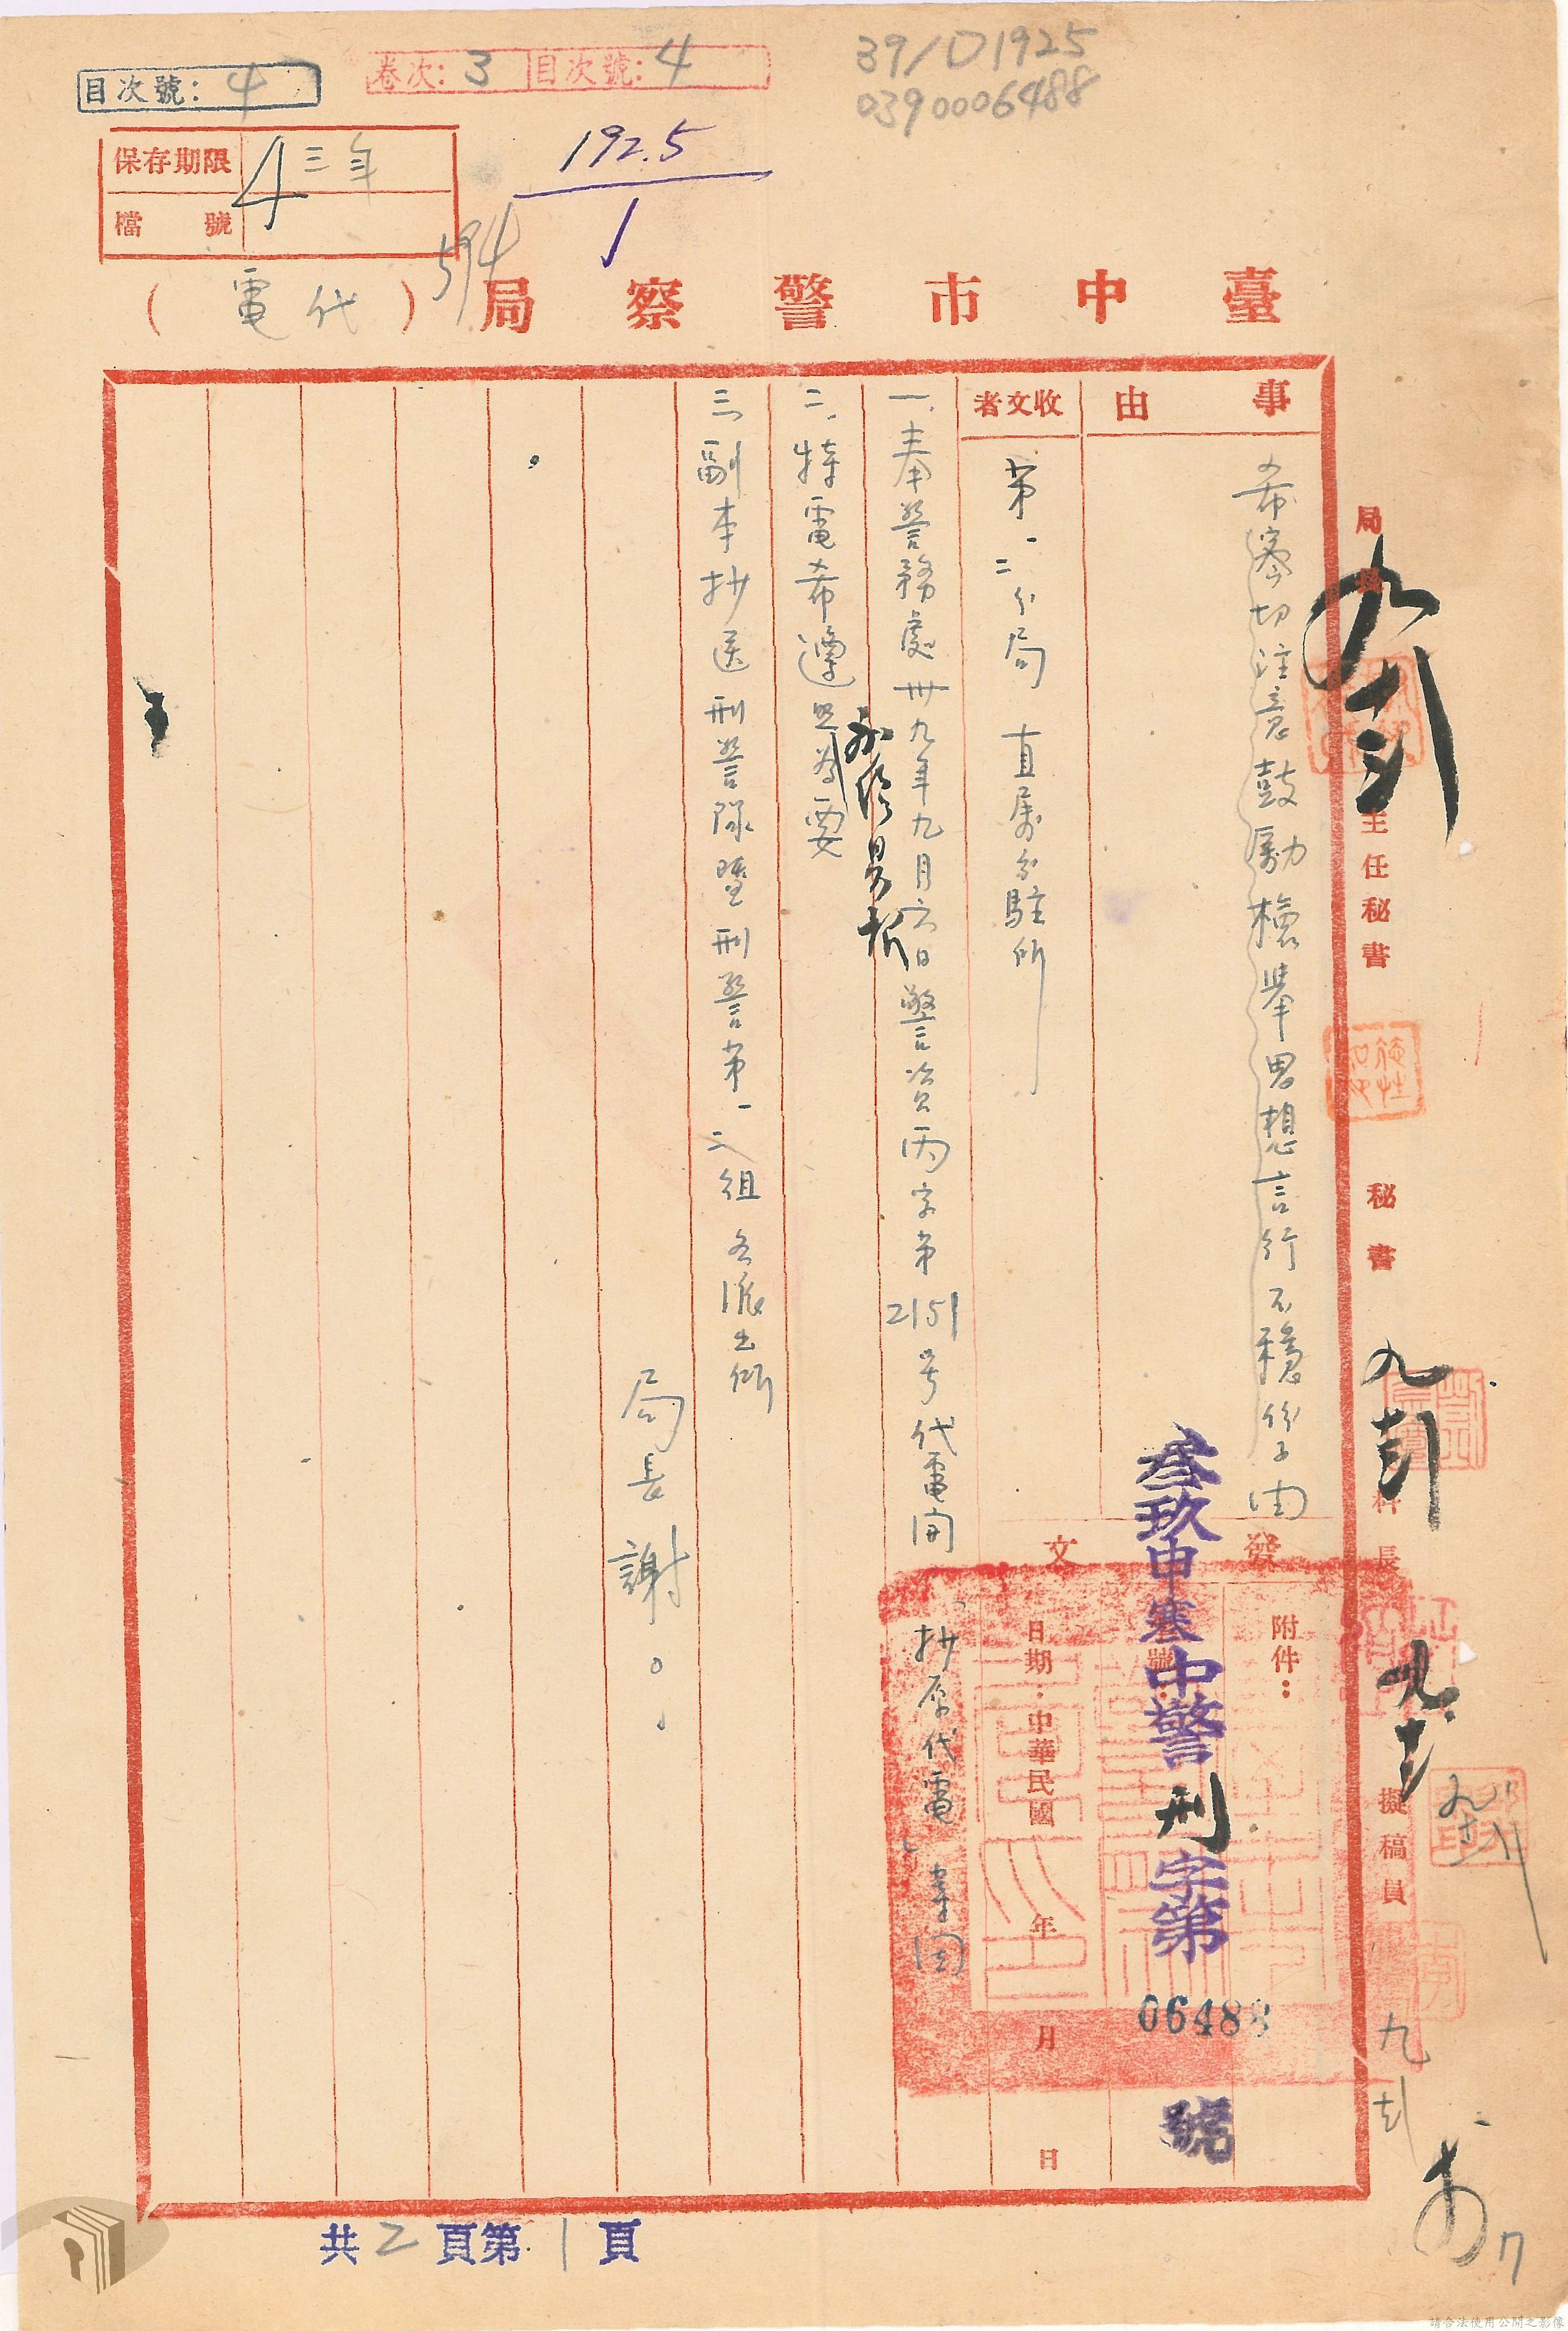 目次號：4
卷次：3 目次號：4
39/D1925
0390006488
保存期限 三年
檔號
4
192.5
1
594
臺中市警察局（代電）
事由
希密切注意鼓勵檢舉思想言行不穩份子由
收文者
第一二分局 直屬分駐所
發文
附件：
號
叁玖申寒中警刑字第06488號
日期：中華民國 年 月 日
一、奉警務處卅九年九月六日警資丙字第2151号代電開「抄原代電」等因
二、特電希遵照為要
三、副本抄送刑警隊暨刑警第一二組 各派出所
局長 謝○○
局長
主任秘書
秘書
科長
擬稿員
共2頁第1頁
請合法使用公開之影像